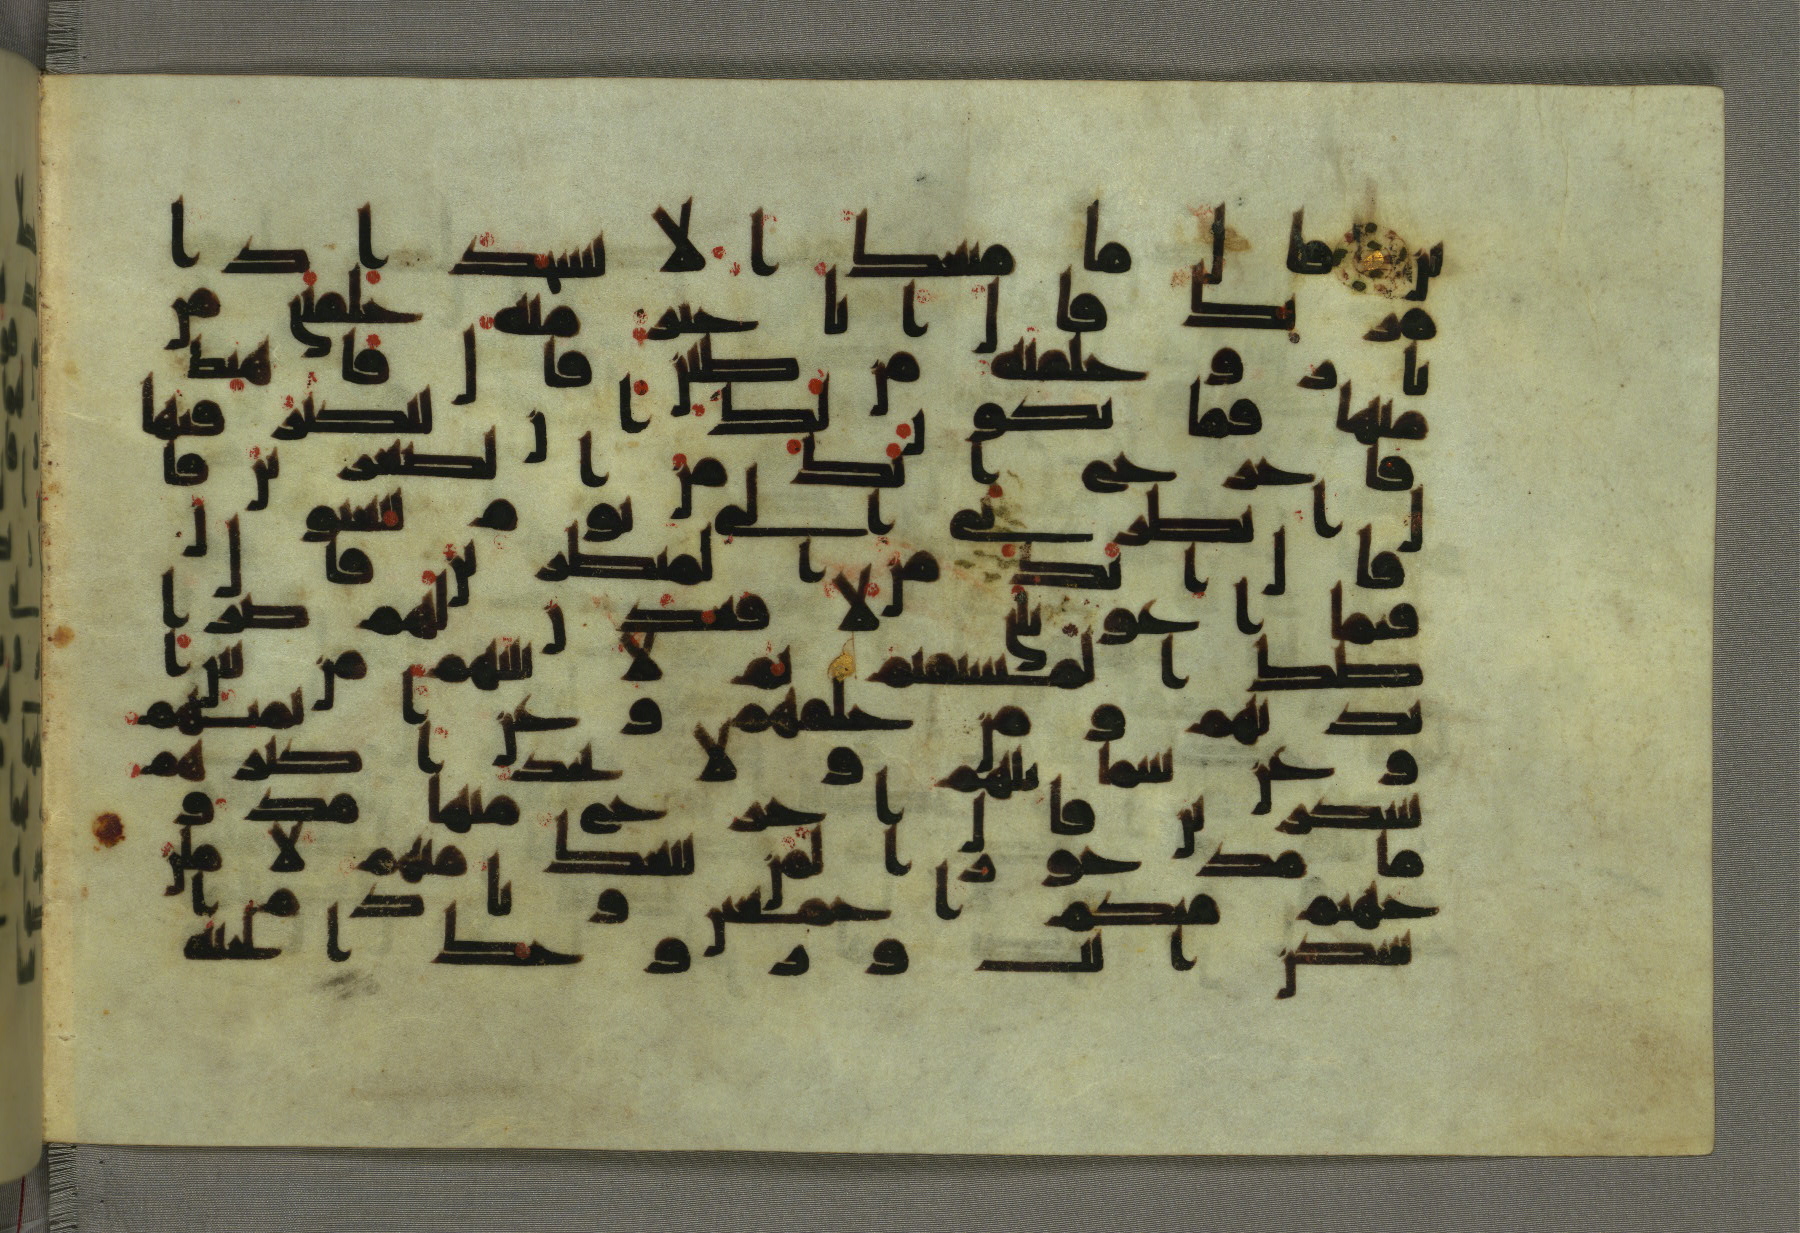 ين قال ما منعك الا تسجد اذ ا
مرتك قال انا خير منه خلقتني من
نار و خلقته من طين قال فاهبط
منها فما يكون لك ان تتكبر فيها
فاخرج انك من الصغرين قا
ل انظرني الى يوم يبعثون
قال انك من المنظرين قال
فبما اغويتني لاقعدن لهم صرا
طك المستقيم ثم لاتينهم من بين ا
يديهم و من خلفهم و عن ايمنهم
و عن شمايلهم و لا تجد اكثرهم
شكرين قال اخرج منها مذو
ما مدحورا لمن تبعك منهم لاملن
جهنم منكم اجمعين و يادم ا
سكن انت و زوجك الجنه